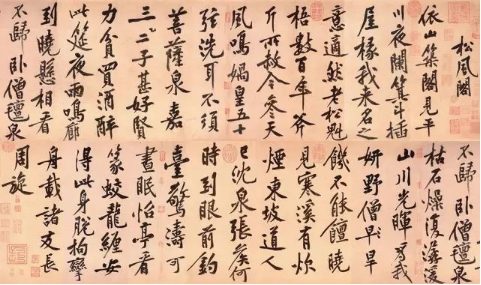 松風閣
依山築閣見平
川夜闌箕斗插
屋椽我来名之
意適然老松魁
梧數百年斧
斤所赦今參天
風鳴媧皇五十
弦洗耳不須
菩薩泉嘉
三二子甚好賢
力貧買酒醉
此筵夜雨鳴廊
到曉懸相看
不歸卧僧氊泉
不歸卧僧氊泉
枯石燥復潺湲
山川光暉為我
妍野僧早旱
饑不能饘曉
見寒溪有炊
煙東坡道人
已沈泉張侯何
時到眼前釣
臺驚濤可
晝眠怡亭看
篆蛟龍纏安
得此身脫拘攣
舟載諸友長
周旋